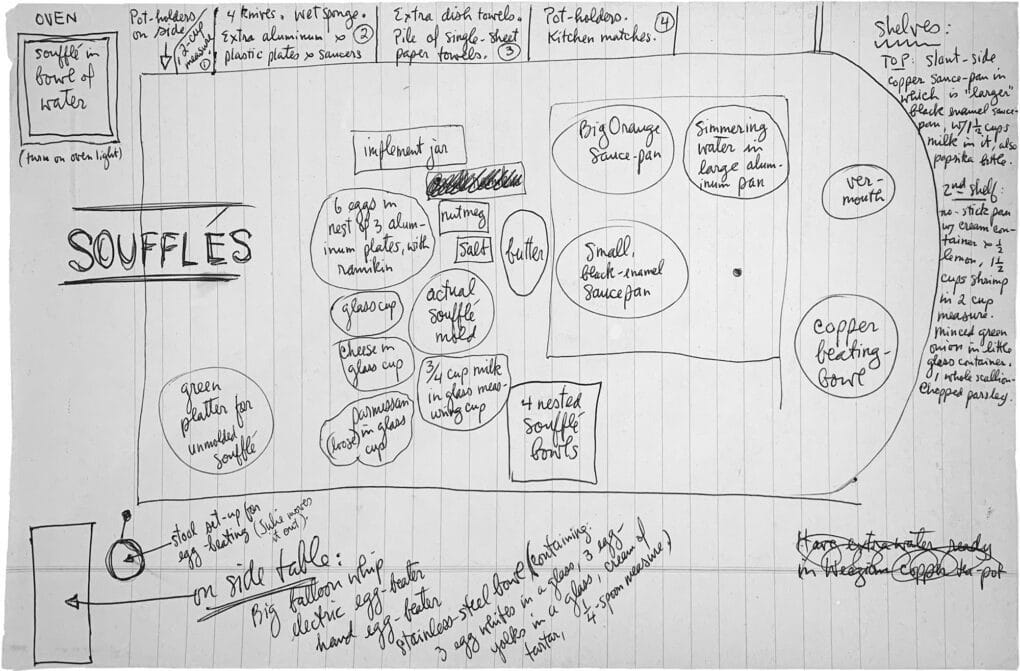 OVEN
soufflé in
bowl of
water
(turn on oven light)
Pot-holders/
on side
2-cup
measure
1
4 knives. Wet sponge.
Extra aluminum 2
plastic plates saucers
Extra dish towels.
Pile of single-sheet
paper towels. 3
Pot-holders. 4
Kitchen matches.
Shelves:
TOP: slant-side
copper sauce-pan in
which is "larger"
black enamel sauce-
pan, w/ 1 1/2 cups
milk in it, also
paprika
2nd shelf:
no-stick pan
w/ cream con-
tainer 1/2
lemon, 1 1/2
cups shrimp
in 2 cup
measure.
minced green
onion in little
glass container.
1 whole scallion-
chopped parsley.
SOUFFLÉS
implement jar
6 eggs in
nest of 3 alum-
inum plates, with
ramikin
nutmeg
salt
butter
glass cup
actual
soufflé
mold
cheese in
glass cup
3/4 cup milk
in glass meas-
uring cup
parmesan
(loose) in glass
cup
green
platter for
unmolded
soufflé
4 nested
soufflé
bowls
Big Orange
Sauce-pan
Simmering
water in
large alum-
inum pan
Small,
black-enamel
saucepan
ver-
mouth
copper
beating-
bowl
stool set-up for
egg-beating (Julie moves
it out).
on side table:
Big balloon whip
electric egg-beater
hand egg-beater
stainless-steel bowl (containing:
3 egg whites in a glass, 3 egg-
yolks in a glass, cream of
tartar, 1/4-spoon measure.)
Have extra water ready
in copper tea-pot